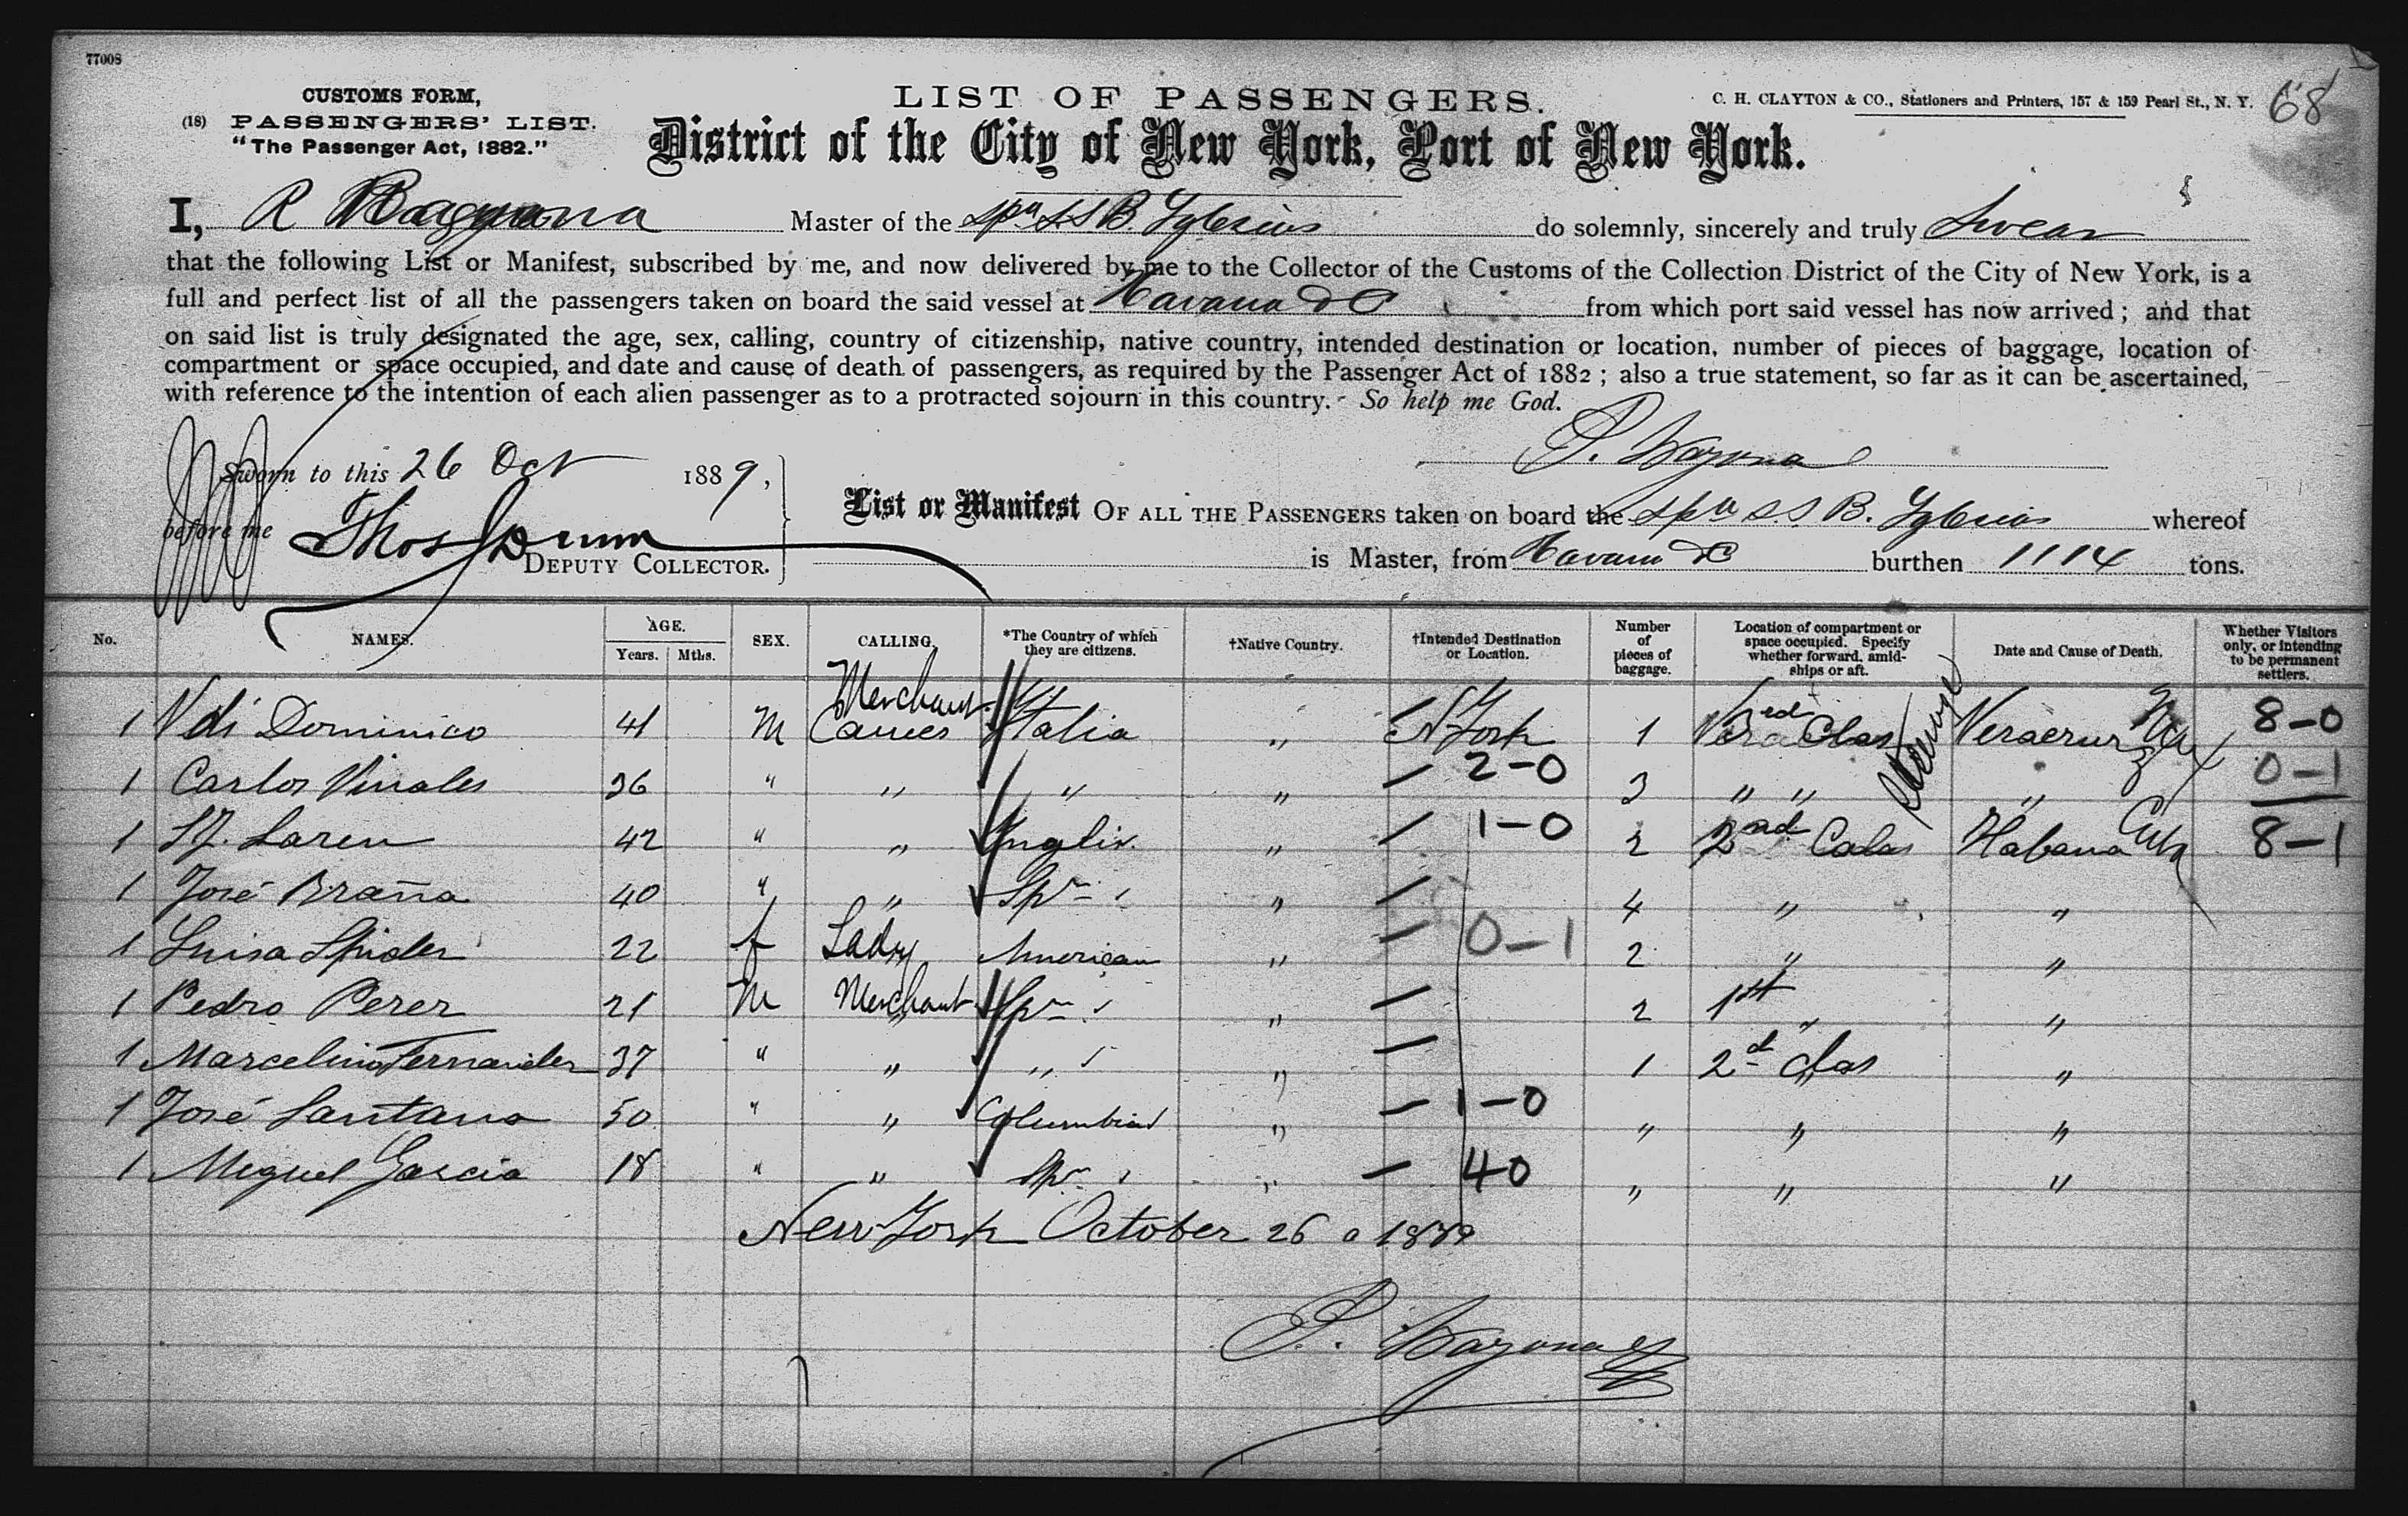 77008
CUSTOMS FORM,
(18) PASSENGERS' LIST.
"The Passenger Act, 1882."
LIST OF PASSENGERS.
C. H. CLAYTON & CO., Stationers and Printers, 157 & 159 Pearl St., N. Y.
68
District of the City of New York, Port of New York.
I, R Master of the Spn SS B. Yglesias do solemnly, sincerely and truly Swear
that the following List or Manifest, subscribed by me, and now delivered by me to the Collector of the Customs of the Collection District of the City of New York, is a
full and perfect list of all the passengers taken on board the said vessel at Havana &c from which port said vessel has now arrived; and that
on said list is truly designated the age, sex, calling, country of citizenship, native country, intended destination or location, number of pieces of baggage, location of
compartment or space occupied, and date and cause of death of passengers, as required by the Passenger Act of 1882; also a true statement, so far as it can be ascertained,
with reference to the intention of each alien passenger as to a protracted sojourn in this country. So help me God.
Sworn to this 26 Oct 1889,
before me Thos Dunn
DEPUTY COLLECTOR.
List or Manifest OF ALL THE PASSENGERS taken on board the Spn S.S B. Yglesias whereof
is Master, from Havana &c burthen 1114 tons.
No. NAMES. AGE. Years. Mths. SEX. CALLING. *The Country of which they are citizens. †Native Country. †Intended Destination or Location. Number of pieces of baggage. Location of compartment or space occupied. Specify whether forward, amidships or aft. Date and Cause of Death. Whether Visitors only, or intending to be permanent settlers.
1 V di Dominico 41 M Merchant Italia " N York 1 3rd Clas Steerage Veracruz Mex 8-0
1 Carlos Vinales 36 " " " " 2-0 3 " " " 0-1
1 Laren 42 " " Inglis. " 1-0 2 2nd Calas Habana Cuba 8-1
1 José Braña 40 " " Spn " 4 " "
1 Luisa Spider 22 f Lady American " 0-1 2 " "
1 Pedro Perez 21 M Merchant Spn " 2 1st " "
1 Marcelino Fernandez 37 " " " " 1 2d clas "
1 José Santana 50 " " Columbia " 1-0 " " "
1 Miguel Garcia 18 " " Spn " 40 " " "
New York October 26 1889